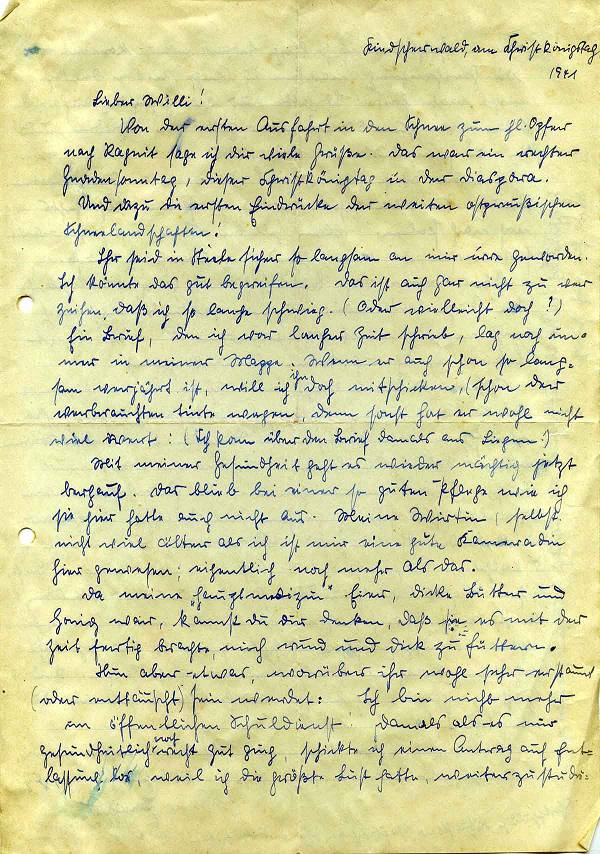 Kindschenwald, am Christkönigstag
1941
Lieber Willi!
Von der ersten Ausfahrt in den Schnee zum hl. Opfer
nach Ragnit sage ich dir viele Grüße. Das war ein rechter
Gnadensonntag, dieser Christkönigtag in der Diaspora.
Und dazu die ersten Eindrücke der weiten ostpreußischen
Schneelandschaften!
Ihr seid in Steele sicher so langsam an mir irre geworden.
Ich könnte das gut begreifen. Das ist auch gar nicht zu ver
zeihen, daß ich so lange schwieg. (Oder vielleicht doch?)
Ein Brief, den ich vor langer Zeit schrieb, lag noch im-
mer in meiner Mappe. Wenn er auch schon so lang-
sam verjährt ist, will ich ihn doch mitschicken, (schon der
verbrauchten Tinte wegen, denn sonst hat er wohl nicht
viel Wert! (Ich kam über den Brief damals ans Liegen!)
Mit meiner Gesundheit geht es wieder mächtig jetzt
bergauf. Das blieb bei einer so guten Pflege wie ich
sie hier hatte auch nicht aus. Meine Wirtin, selbst
nicht viel älter als ich ist mir eine gute Kameradin
hier gewesen; eigentlich noch mehr als das.
Da meine "Hauptmedizin" Eier, dicke Butter und
Honig war, kannst du dir denken, daß sie es mit der
Zeit fertig brachte, mich rund und dick zu füttern.
Nun aber etwas, worüber ihr wohl sehr erstaunt
(oder enttäuscht) sein werdet: Ich bin nicht mehr
im öffentlichen Schuldienst! Damals als es mir
gesundheitlich nicht recht gut ging, schickte ich einen Antrag auf Ent-
lassung los, weil ich die größte Lust hatte, weiterzustudie-